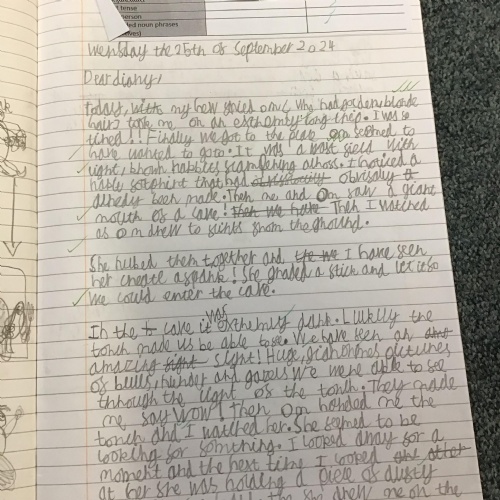 tense
erson
ed noun phrases
ives)
Wensday the 25th of September 2024
Dear diary,
Today, with my new friend Om (who had goldeny blonde
hair) take me on an extremly long trip. I was so
tired!! Finally we got to the place Om seemed to
have wanted to go to. It was a vast field with
light, brown rabbits scampering across. I noticed a
that had obviously obvisoly
alredy been made. Then me and Om saw a giant
mouth of a cave! then we have Then I watched
as Om drew to sticks from the ground.
She rubbed them together and the we I have seen
her create a spark! She grabed a stick and let it so
We could enter the cave.
In the cave it was extremly dark. Luikily the
torch made us be able to see. We have seen an
amazing sight sight! Huge, ginormos pictures
of bulls, and We were able to see
through the light of the torch. They made
me say WOW! Then Om handed me the
torch and I watched her. She seemed to be
looking for somthing. I looked away for a
moment and the next time I looked
at her she was holding a piece of dusty
she drew me on the